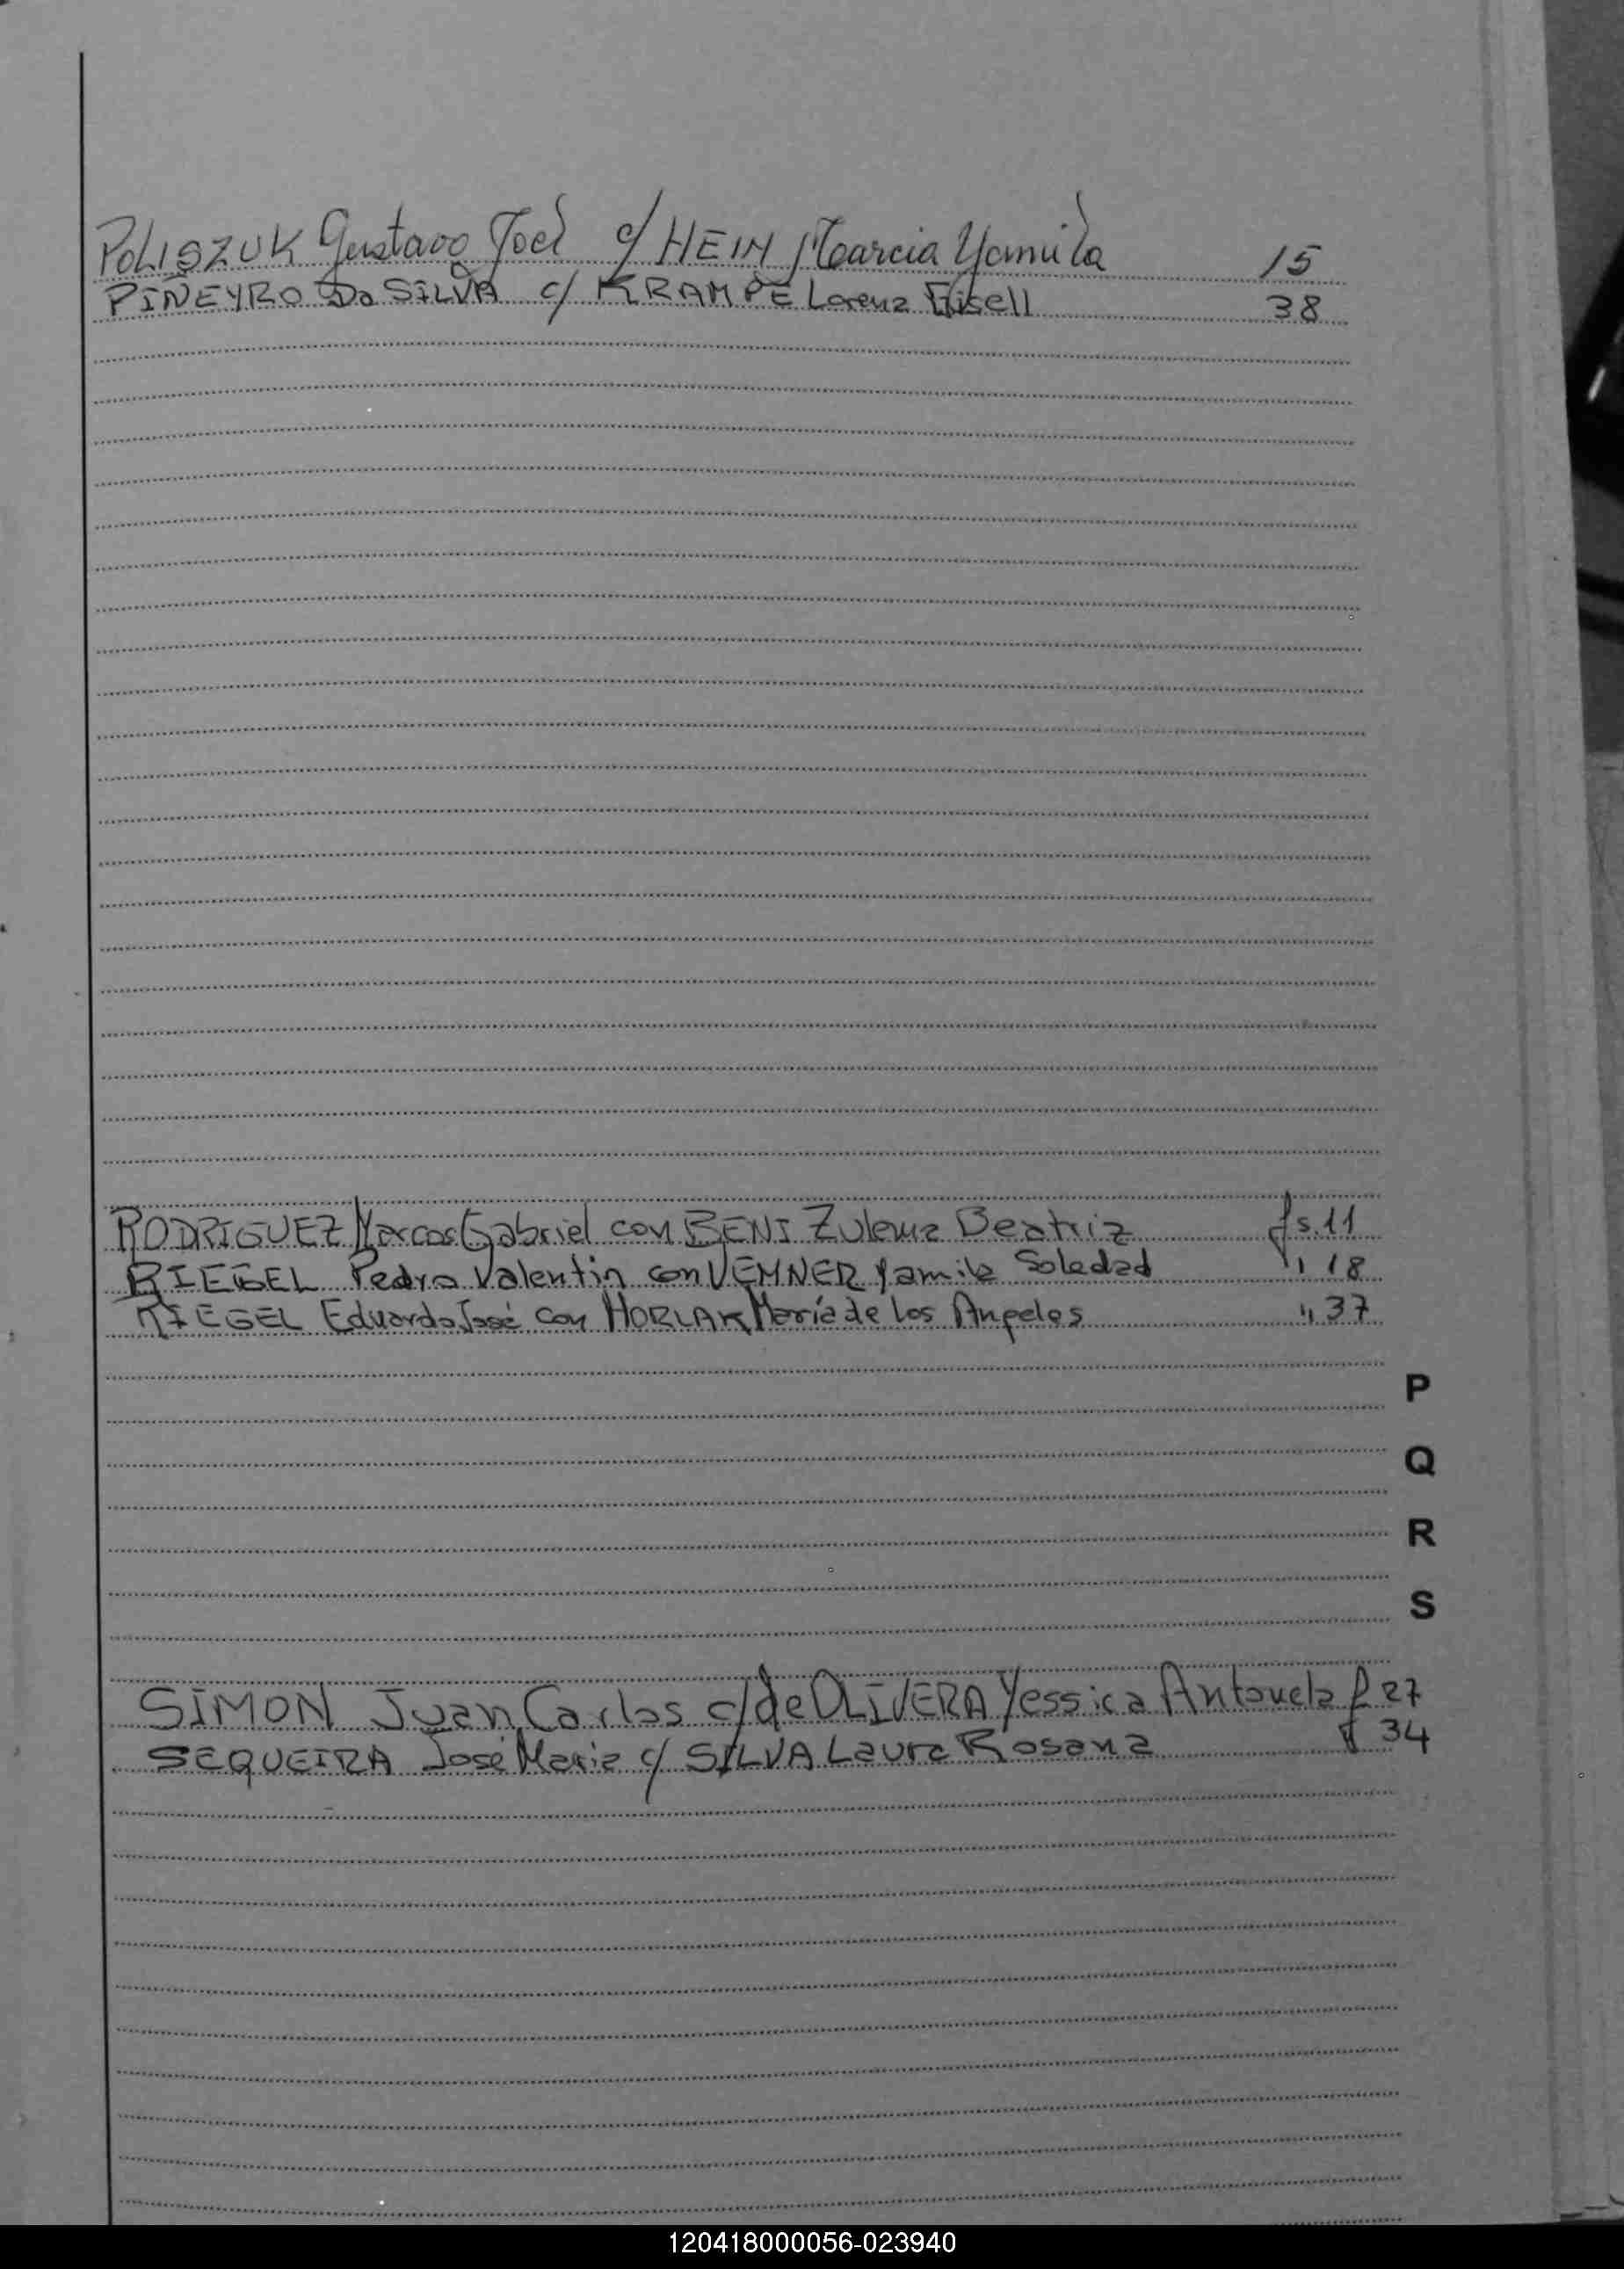 POLISZUK Gustavo Joel c/ HEIN Marcia Yamila 15
PIÑEYRO Da SILVA c/ KRAMPE Lorena Gisell 38
RODRIGUEZ Marcos Gabriel con BENI Zulema Beatriz fs. 11
RIEGEL Pedro Valentin con VEMNER Yamila Soledad " 18
RIEGEL Eduardo José con HORLAK María de los Angeles " 37
P
Q
R
S
SIMON Juan Carlos c/ de OLIVERA Yessica Antonela f 27
SEQUEIRA José Maria c/ SILVA Laura Rosana f 34
120418000056-023940